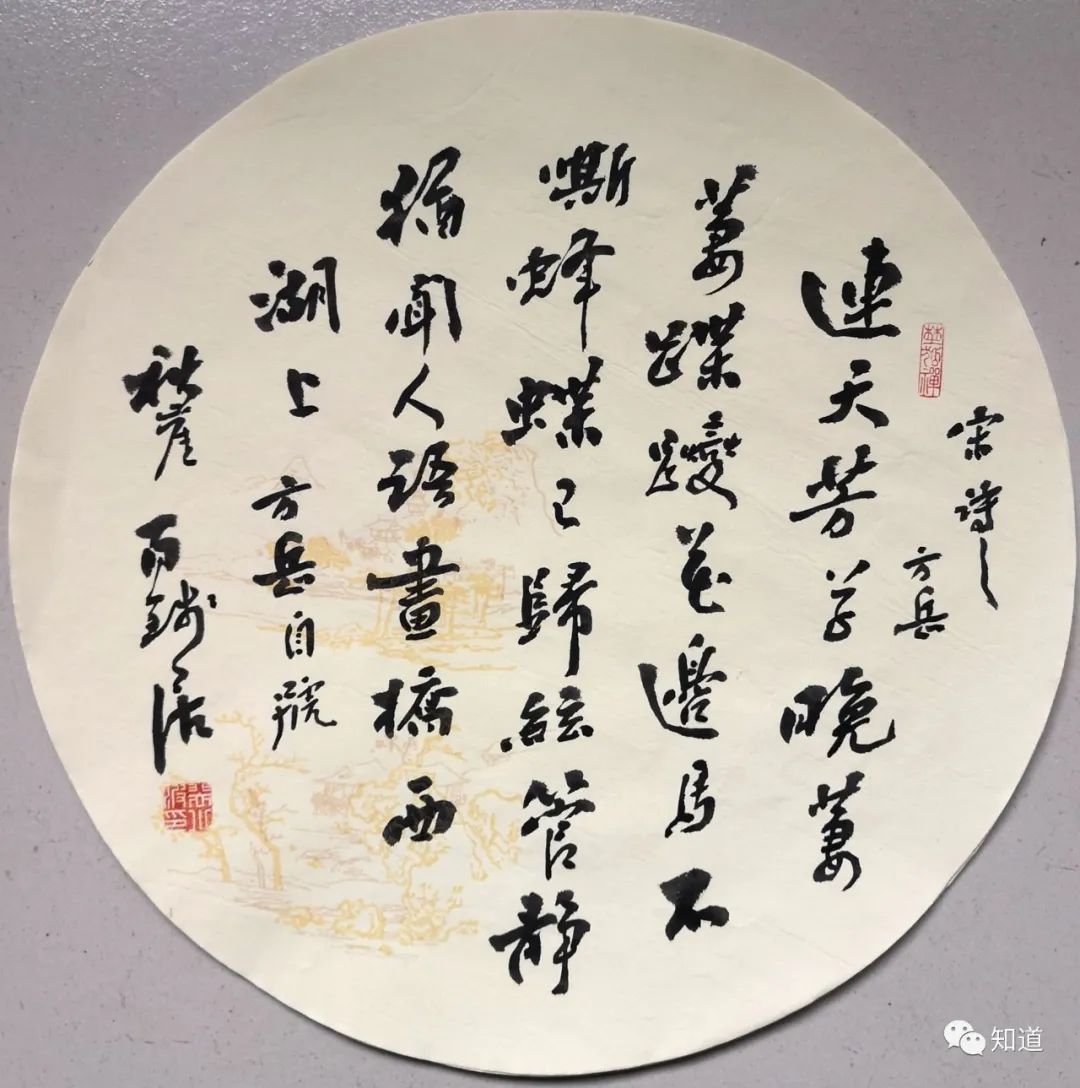 宋詩
方岳
連天芳草晚萋
萋蹀躞花邊馬不
嘶蜂蝶已歸絃管靜
猶聞人語畫橋西
湖上 方岳自號
秋崖
知道